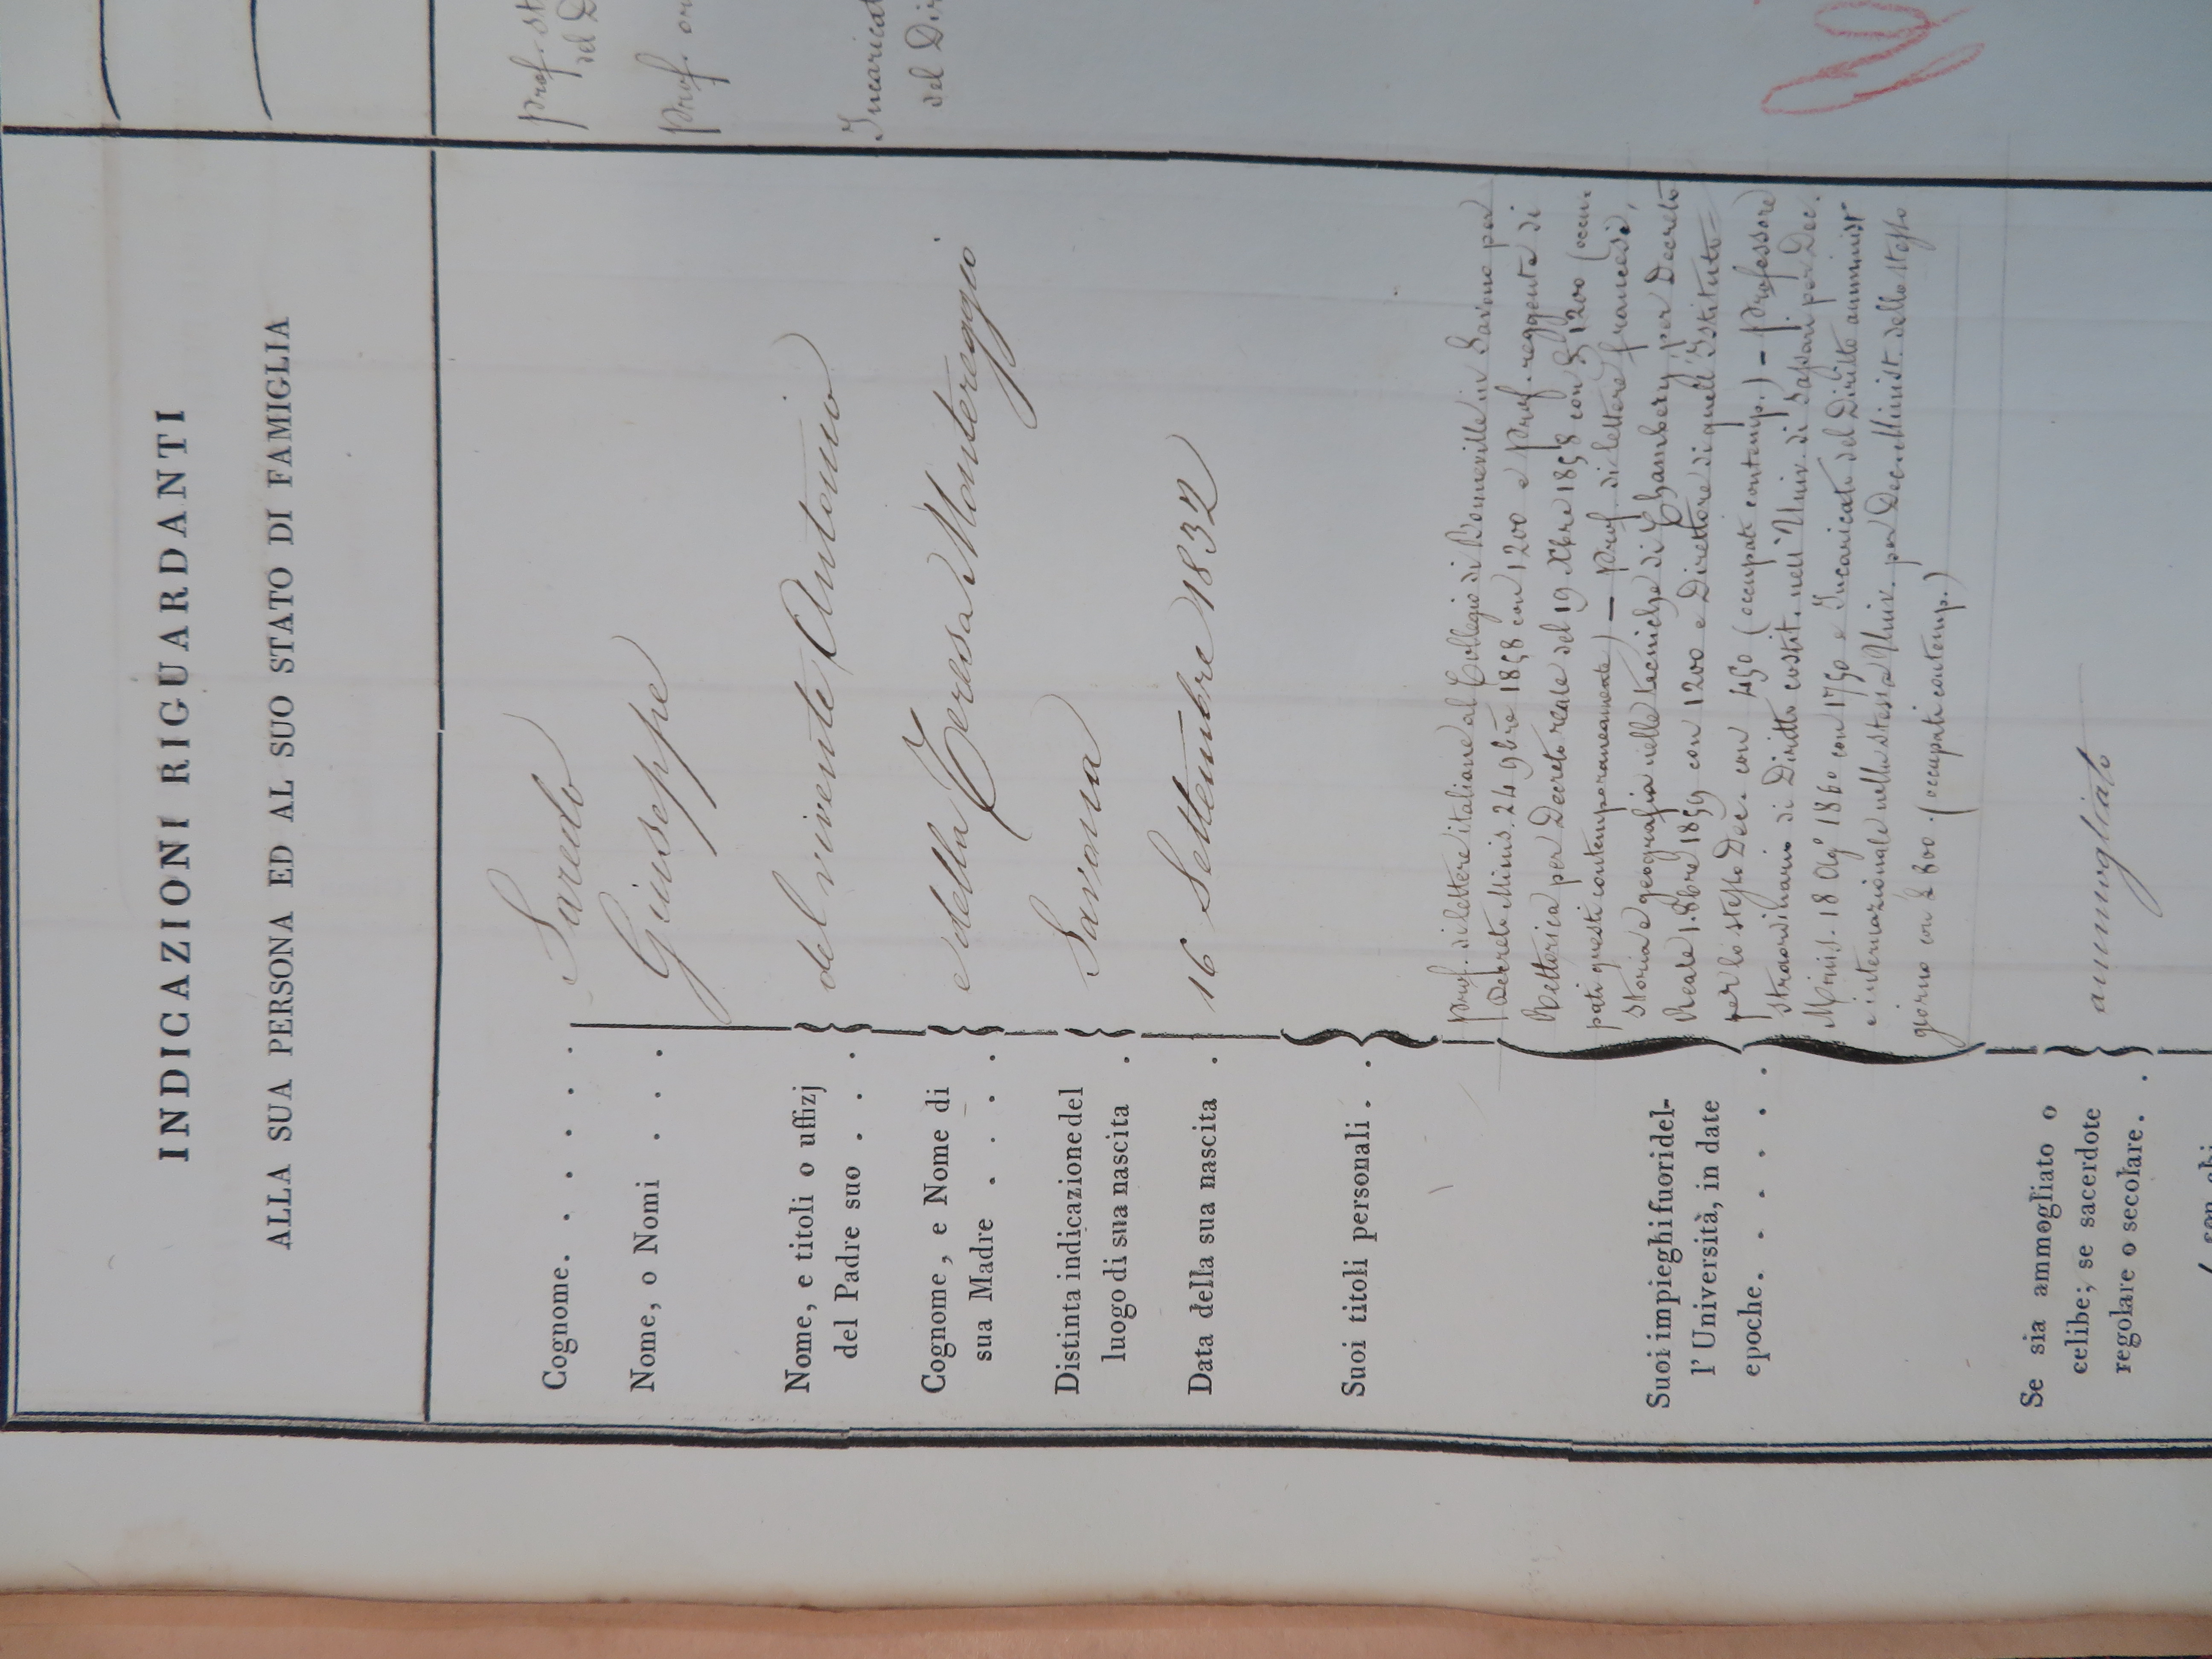 INDICAZIONI RIGUARDANTI
ALLA SUA PERSONA ED AL SUO STATO DI FAMIGLIA
Cognome. . . . . . Saredo
Nome, o Nomi . . . Giuseppe
Nome, e titoli o uffizj
del Padre suo . . . del vivente Antonio
Cognome, e Nome di
sua Madre . . . . e della Teresa Montereggio
Distinta indicazione del
luogo di sua nascita . Savona
Data della sua nascita . 16 Settembre 1832
Suoi titoli personali . .
Suoi impieghi fuori del-
l'Università, in date
epoche. . . . . . .
Prof. di lettere italiane al Collegio di Bonneville in Savoia per
Decreto Minis. 24 9bre 1858 con 1200 e Prof. reggente di
Rettorica per Decreto reale del 19 Xbre 1858 con £ 1200 (occu.
pati questi contemporaneamente) — Prof. di lettere francesi,
storia e geografia nelle tecniche di Chambery, per Decreto
Reale 1. 8bre 1859 con 1200 e Direttore di quell'Istituto =
per lo stesso Dec. con 450 (occupati contemp.) — Professore
straordinario di Diritto costit. nell'Univ. di Sassari per Dec.
Minis. 18 Ag° 1860 con 1750 e Incaricato del Diritto amminist
e internazionale nella stessa Univ. per Dec. Minist. dello stesso
giorno con £ 800. (occupati contemp.)
Se sia ammogliato o
celibe; se sacerdote
regolare o secolare. . ammogliato
prof. st
del D
prof. or
Incaricat
del Dir